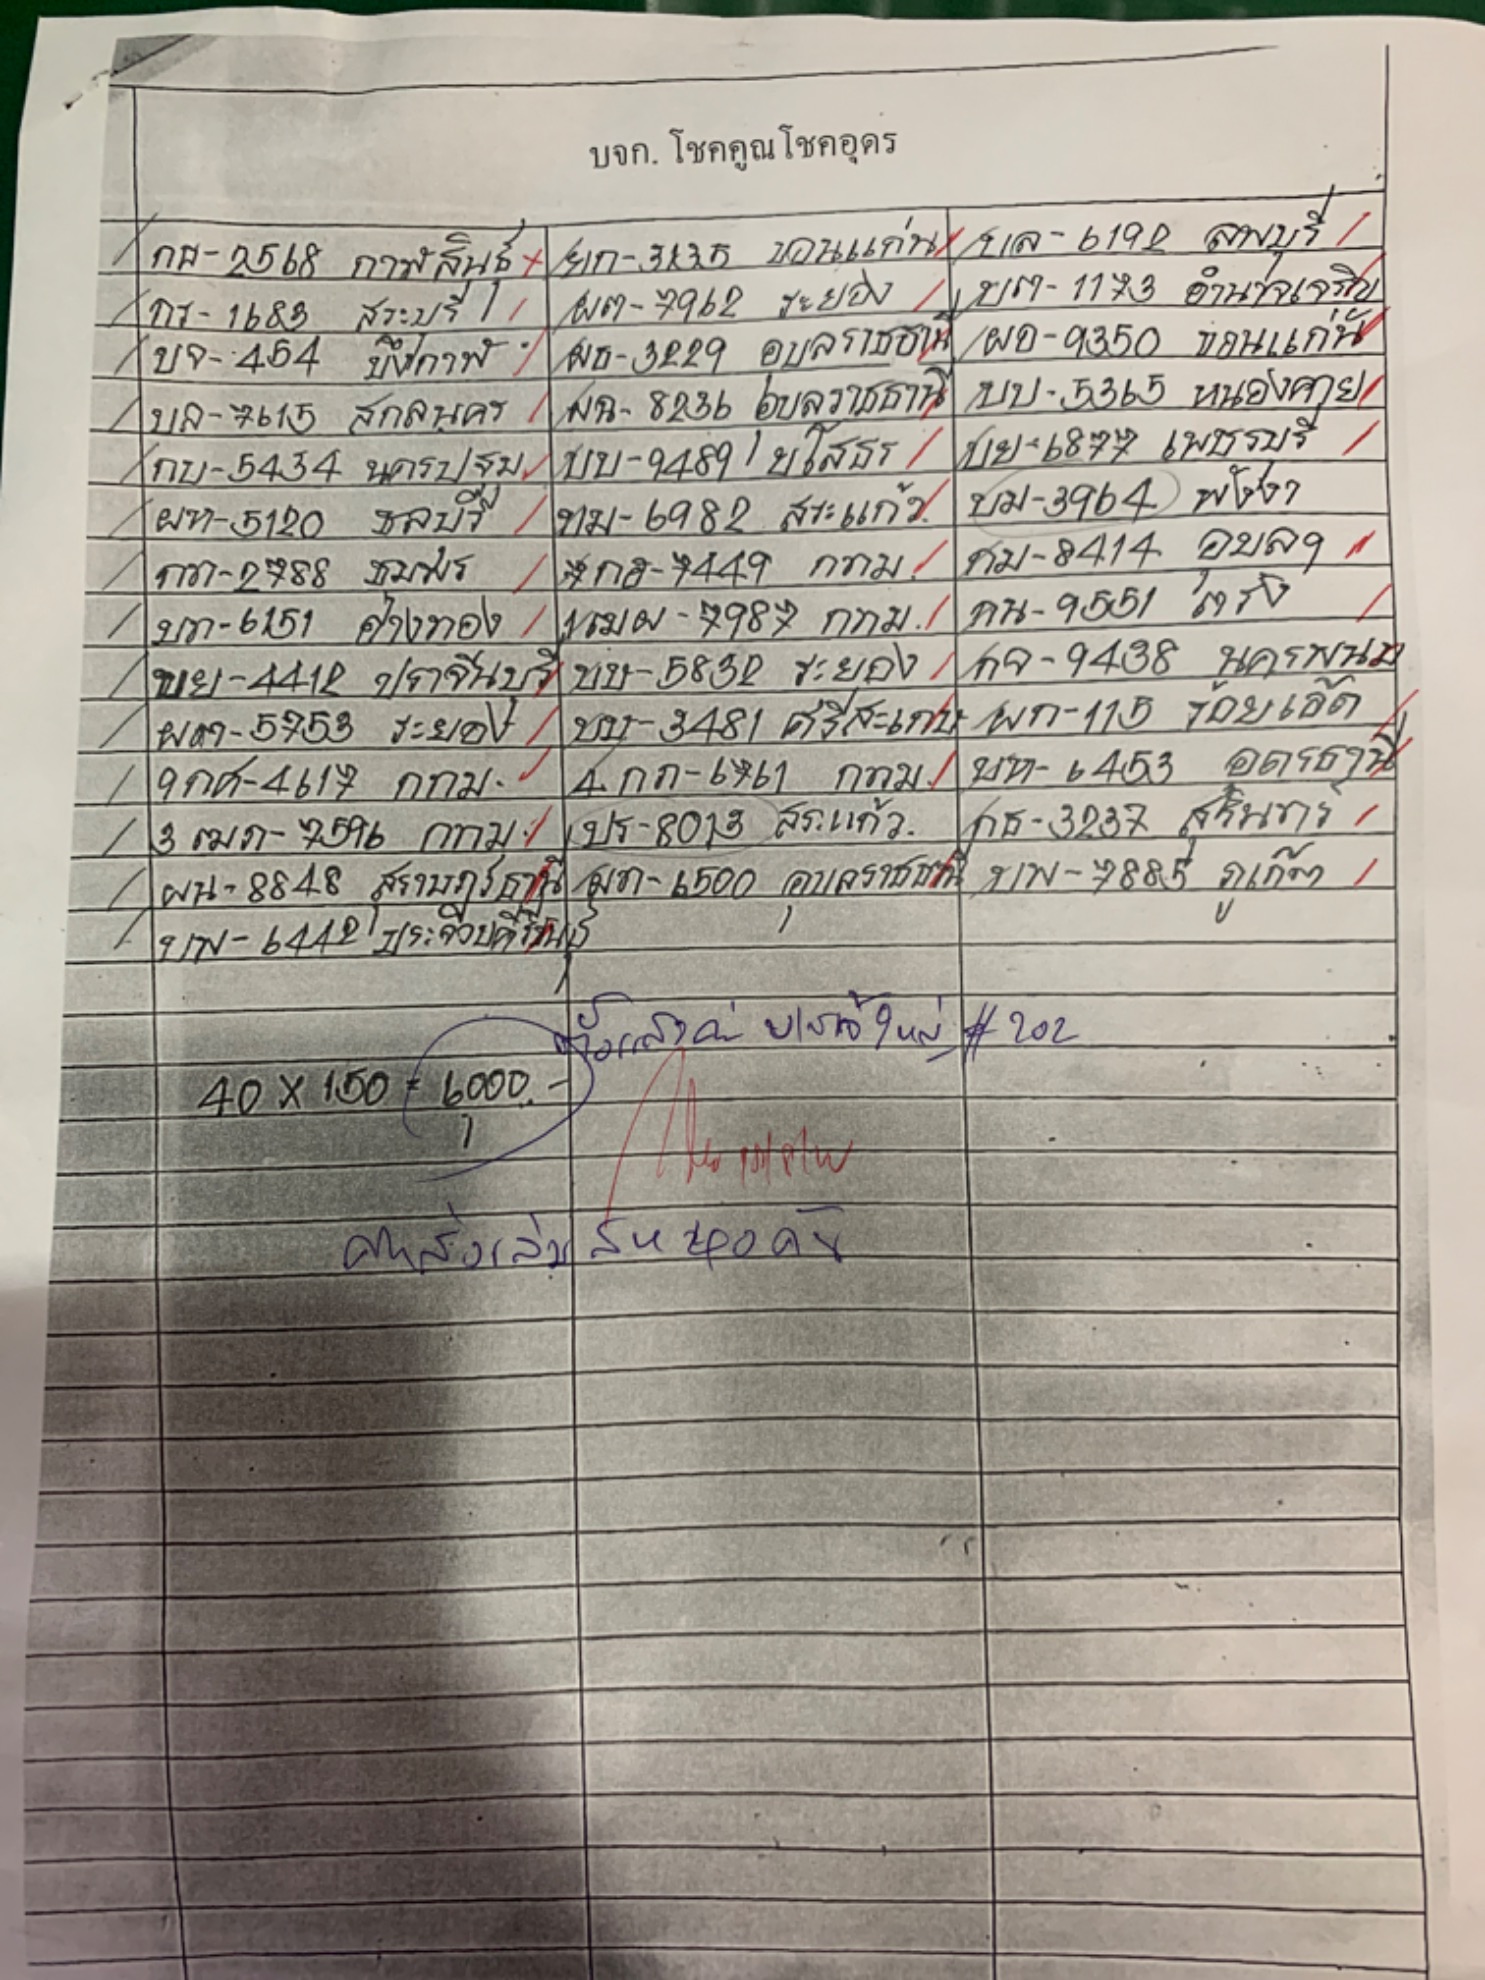 บจก. โชคคูณโชคอุดร
กส-2568 กาฬสินธุ์ ยก-3235 ขอนแก่น ขเล-6192 ลพบุรี
กร-1683 สระบุรี ผต-7962 ระยอง บต-1173 อำนาจเจริญ
บจ-454 บึงกาฬ ผธ-3229 อุบลราชธานี ผอ-9350 ขอนแก่น
บล-7615 สกลนคร ผฉ-8236 อุบลราชธานี บบ-5365 หนองคาย
กบ-5434 นครปฐม บบ-9489 ยโสธร บย-6877 เพชรบุรี
ผท-5120 ชลบุรี ทม-6982 สระแก้ว บม-3964 พังงา
กท-2788 ชุมพร 7กอ-7449 กทม. กม-8414 อุบลฯ
บท-6151 อ่างทอง 1ฒผ-7987 กทม. กน-9551 ตรัง
บย-4412 ปราจีนบุรี บบ-5832 ระยอง กจ-9438 นครพนม
ผต-5753 ระยอง บบ-3481 ศรีสะเกษ ผก-115 ร้อยเอ็ด
9กศ-4617 กทม. 4กก-6761 กทม. บท-6453 อุดรธานี
3ฒภ-7596 กทม. ปร-8013 สระแก้ว. กธ-3237 สุรินทร์
ผน-8848 สุราษฎร์ธานี ผท-6500 อุบลราชธานี บพ-7885 ภูเก็ต
บพ-6442 ประจวบคีรีขันธ์
#202
40 X 150 = 6000.-
40 คัน